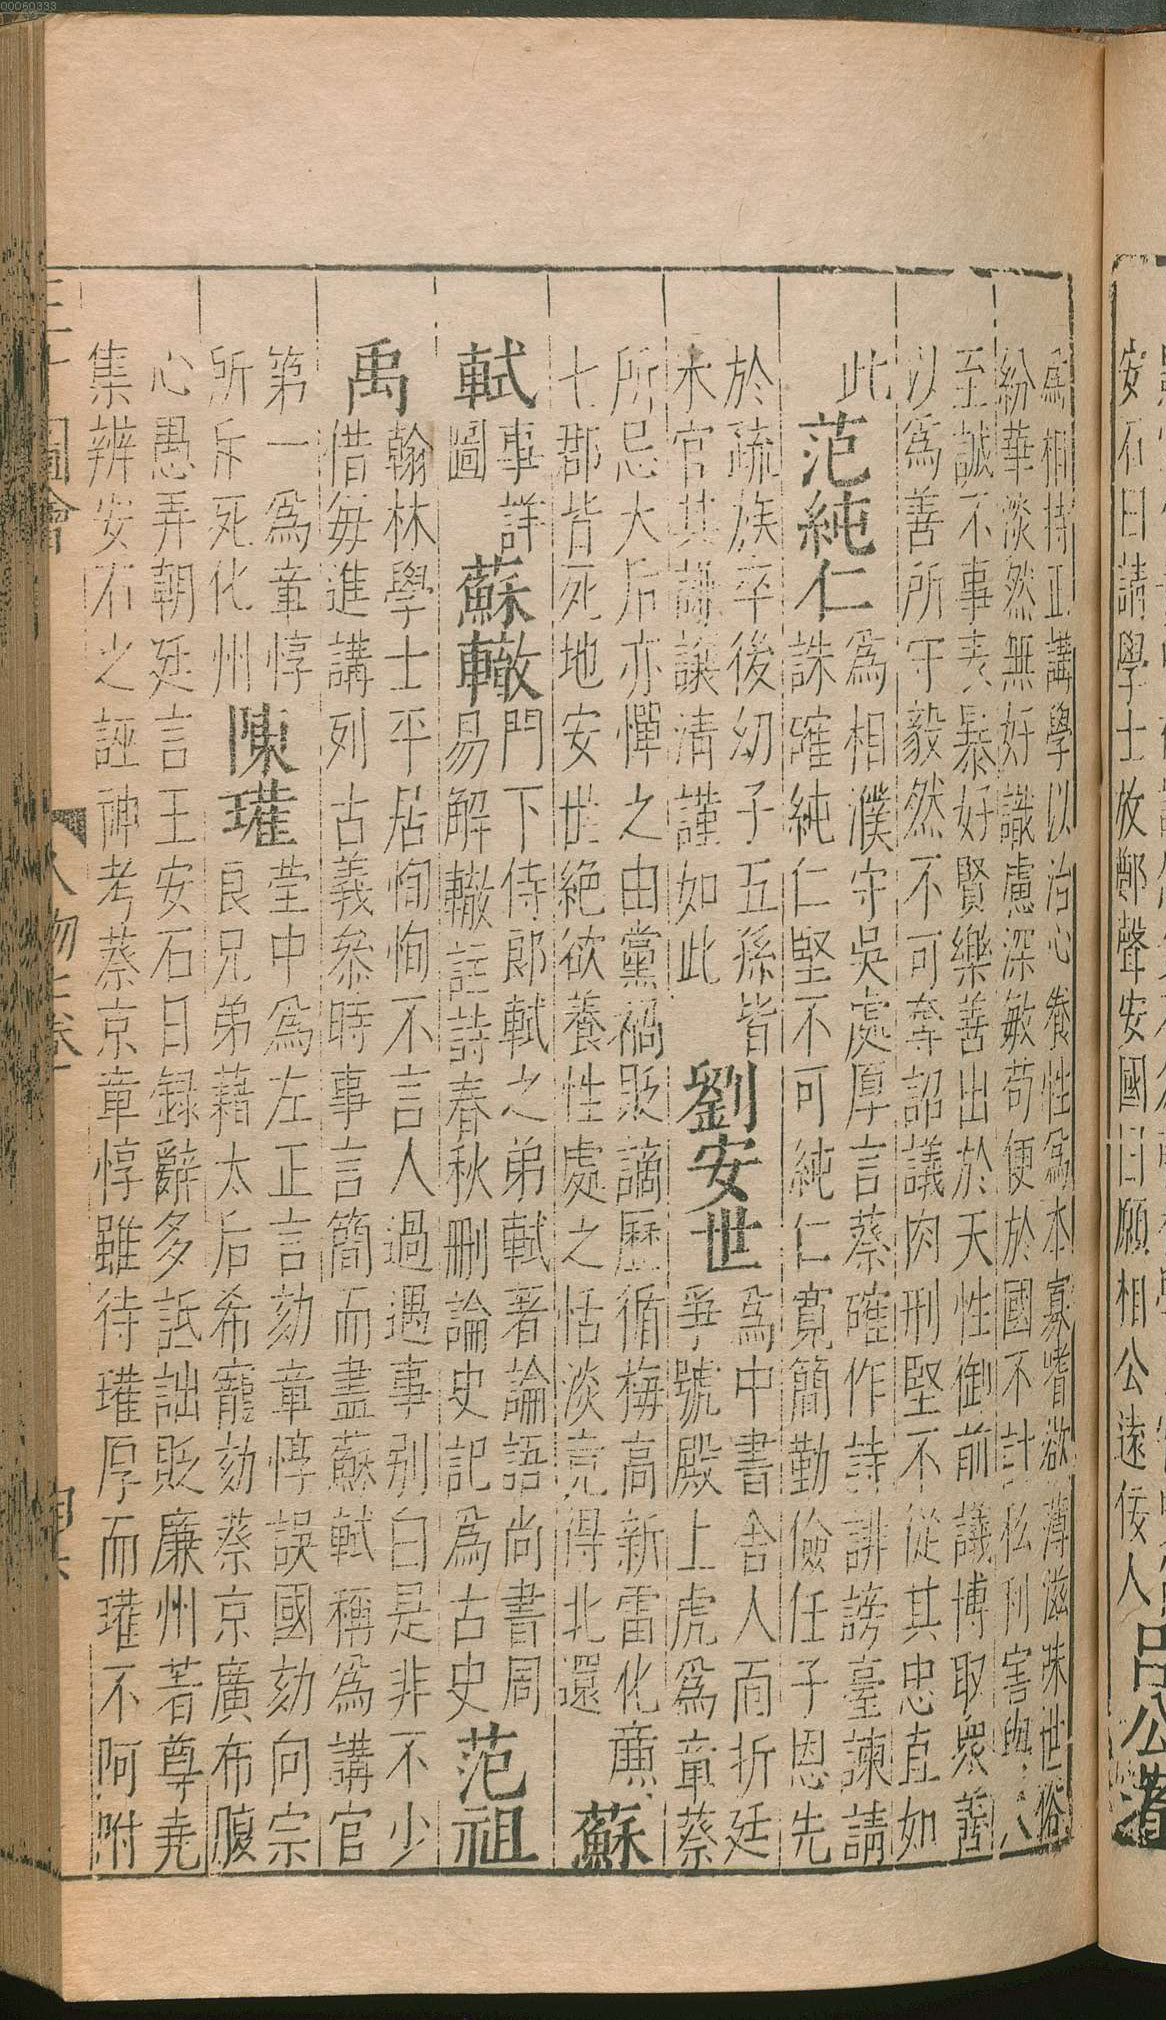 安石曰請學士放鄭聲安國曰願相公遠佞人呂公著
爲相持正講學以治心養性爲本寡嗜慾薄滋味世俗
紛華淡然無好識慮深敏苟便於國不計私利害與人
至誠不事表暴好賢樂善出於天性御前議博取衆善
以爲善所守毅然不可奪詔議肉刑堅不從其忠直如
此
范純仁
爲相濮守吳處厚言蔡確作詩誹謗臺諫請
誅確純仁堅不可純仁寬簡勤儉任子恩先
於疏族卒後幼子五孫皆
未官其謙讓清謹如此
劉安世
爲中書舍人面折廷
爭號殿上虎爲章蔡
所忌大后亦憚之由黨禍貶謫歷循梅高新雷化廉
七郡皆死地安世絕欲養性處之恬淡竟得北還
蘇
軾
事詳
圖
蘇轍
門下侍郎軾之弟軾著論語尚書周
易解轍註詩春秋刪論史記爲古史
范祖
禹
翰林學士平居恂恂不言人過遇事別白是非不少
借每進講列古義參時事言簡而盡蘇軾稱爲講官
第一爲章惇
所斥死化州
陳瓘
瑩中爲左正言劾章惇誤國劾向宗
良兄弟藉太后希寵劾蔡京廣布腹
心愚弄朝廷言王安石日録辭多詆詘貶廉州著尊堯
集辨安石之誣神考蔡京章惇雖待瓘厚而瓘不阿附
三才圖會
人物七卷